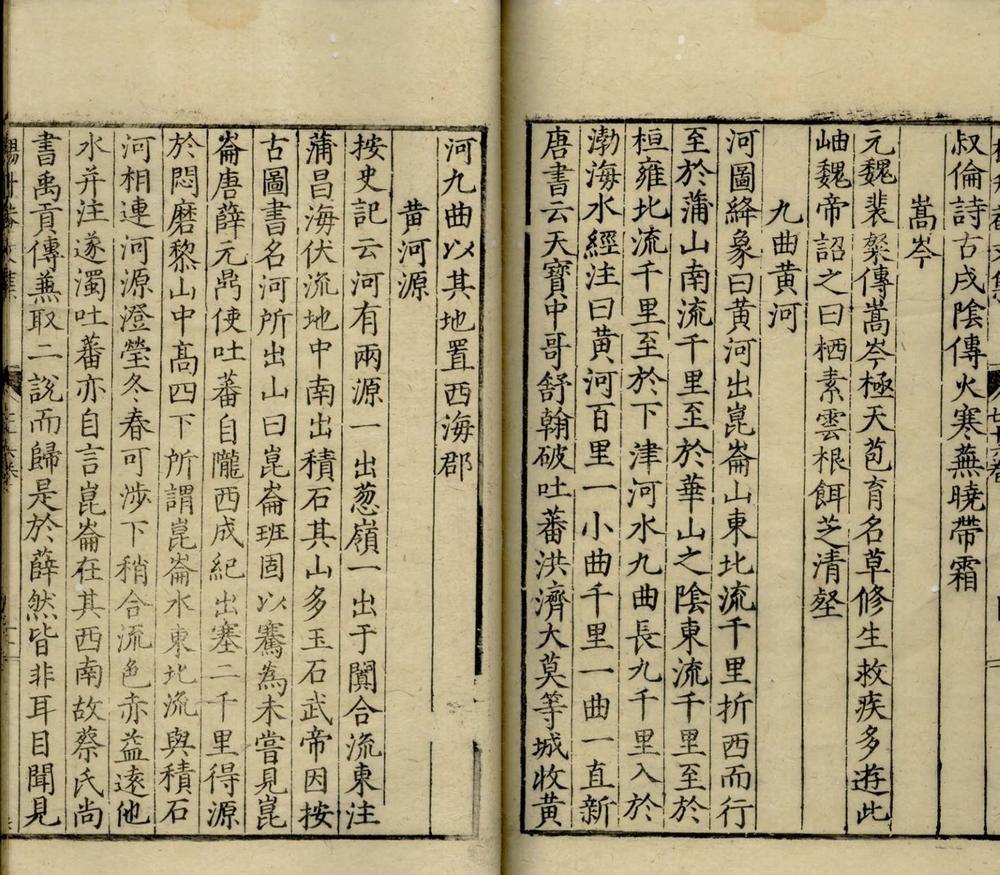 叔倫詩古戍陰傳火寒蕪曉帶霜
嵩岑
元魏裴粲傳嵩岑極天苞育名草修生救疾多遊此
岫魏帝詔之曰栖素雲根餌芝清壑
九曲黃河
河圖絳象曰黃河出崑崙山東北流千里折西而行
至於蒲山南流千里至於華山之陰東流千里至於
桓雍北流千里至於下津河水九曲長九千里入於
渤海水經注曰黃河百里一小曲千里一曲一直新
唐書云天寶中哥舒翰破吐蕃洪濟大莫等城收黃
河九曲以其地置西海郡
黃河源
按史記云河有兩源一出葱嶺一出于闐合流東注
蒲昌海伏流地中南出積石其山多玉石武帝因按
古圖書名河所出山曰崑崙班固以騫為未嘗見崑
崙唐薛元鼎使吐蕃自隴西成紀出塞二千里得源
於悶磨黎山中高四下所謂崑崙水東北流與積石
河相連河源澄瑩冬春可涉下稍合流色赤益遠他
水并注遂濁吐蕃亦自言崑崙在其西南故蔡氏尚
書禹貢傳兼取二說而歸是於薛然皆非耳目聞見